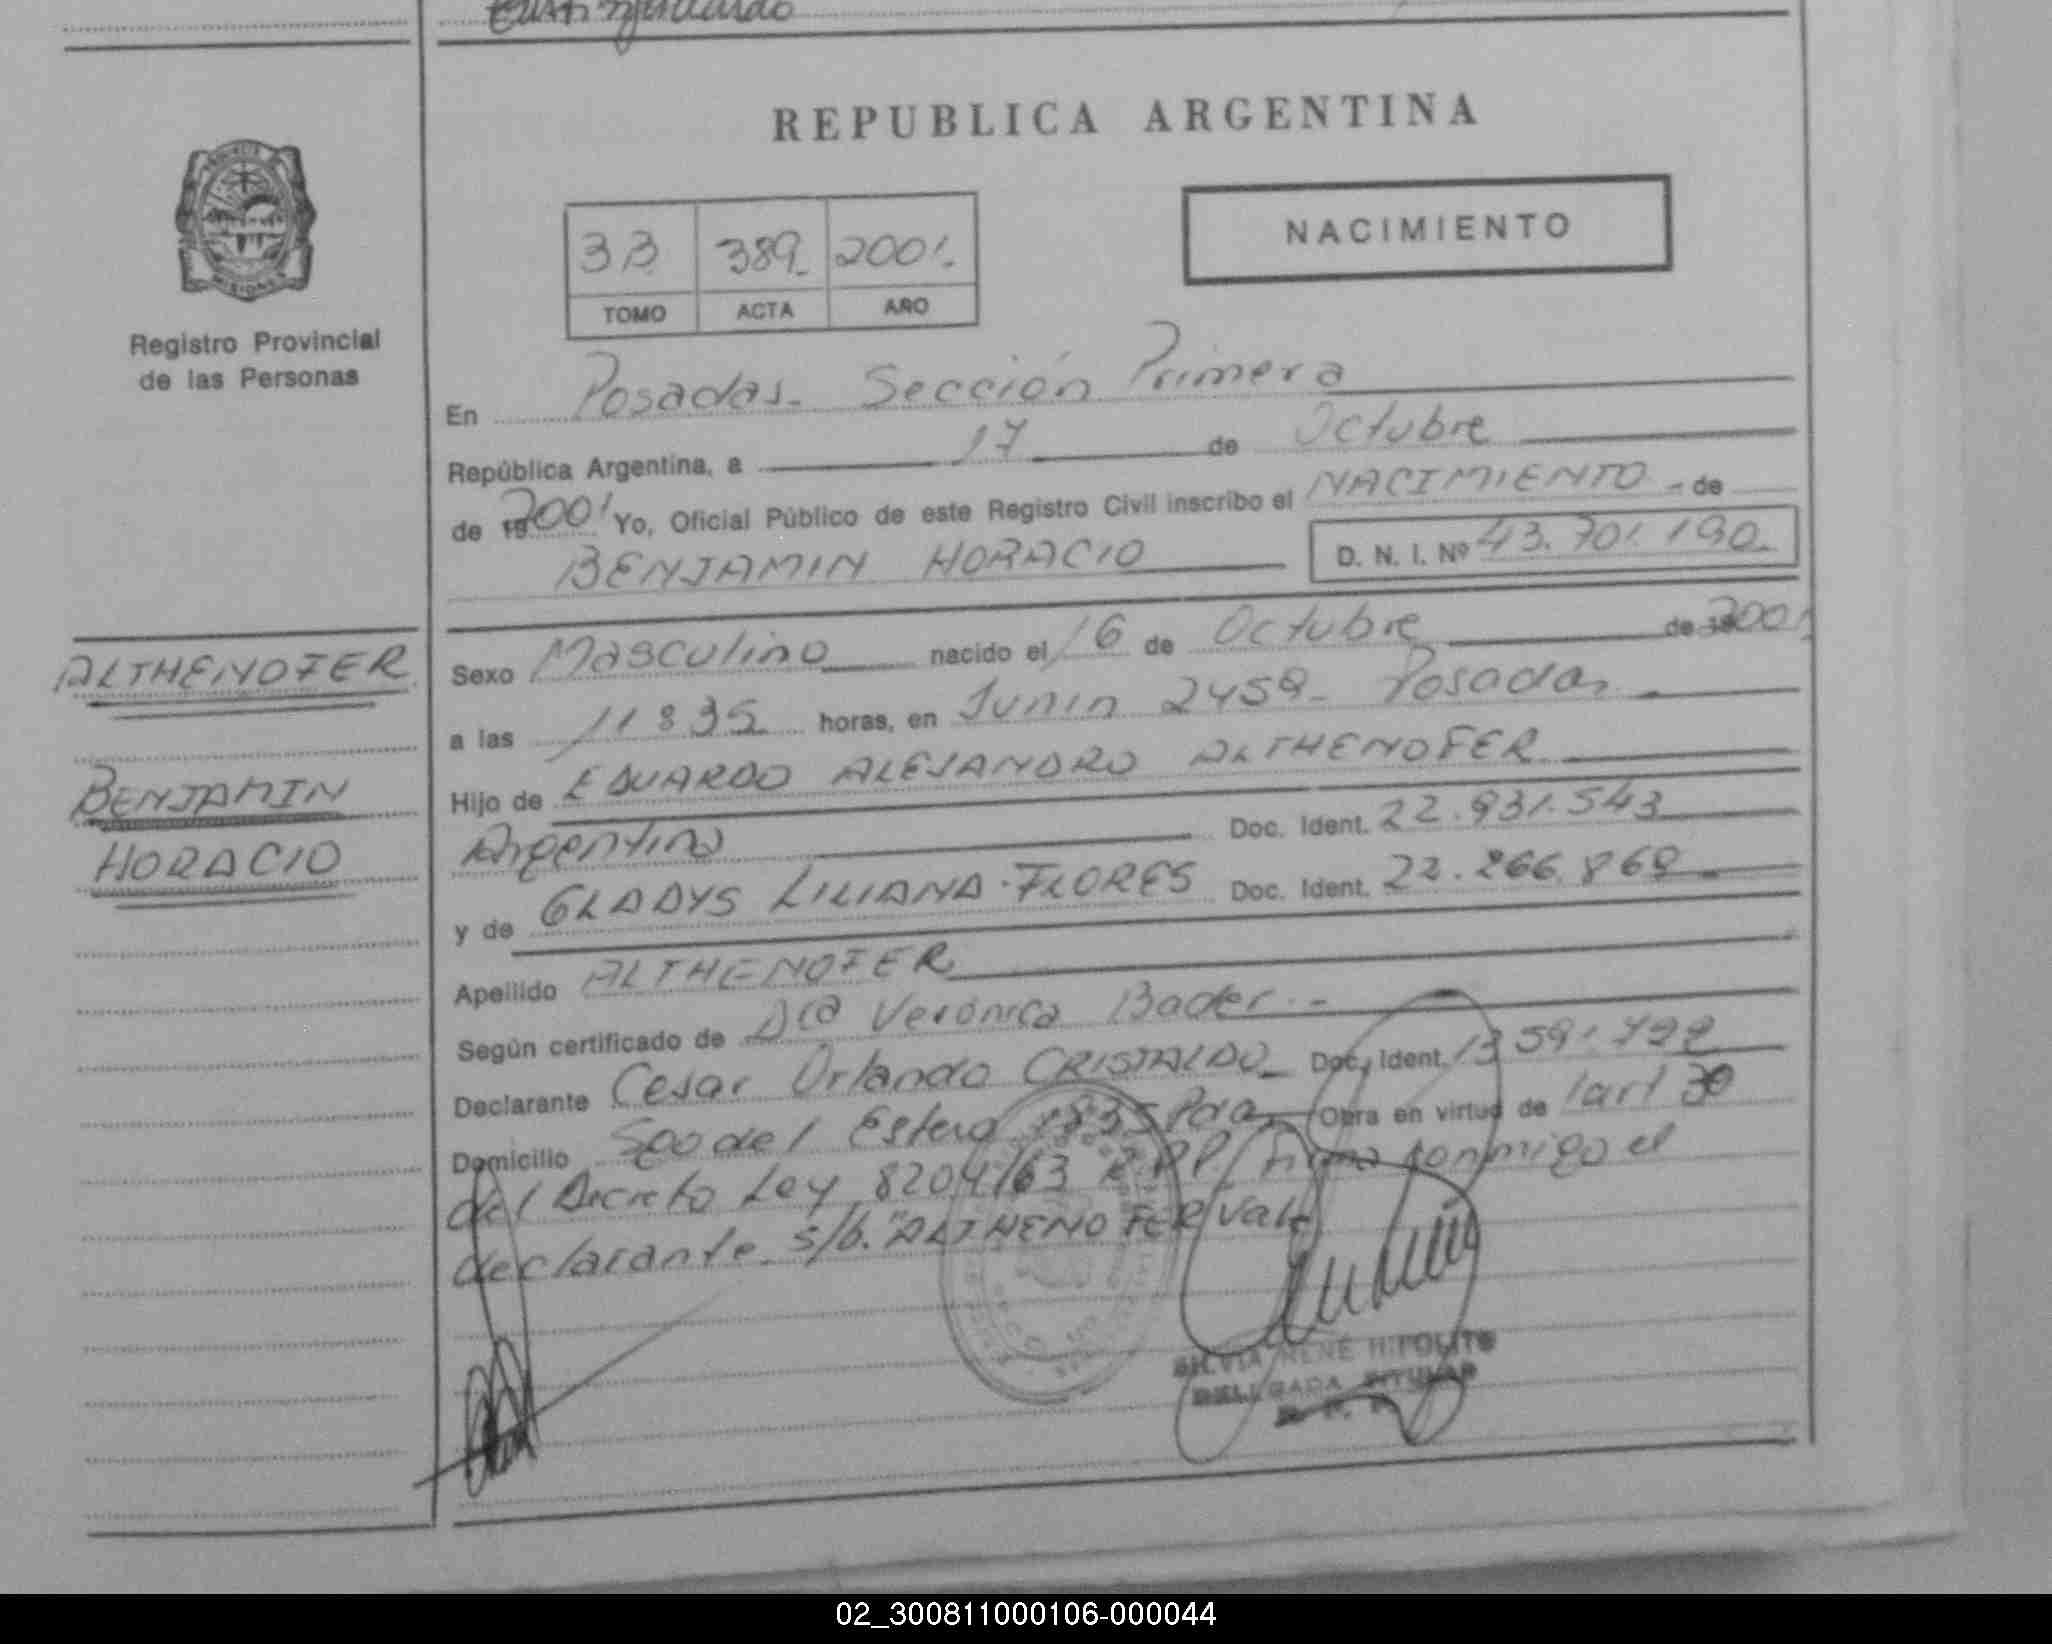 REPUBLICA ARGENTINA
NACIMIENTO
3B 389- 2001.
TOMO ACTA AÑO
Registro Provincial
de las Personas
En Posadas- Sección Primera
República Argentina, a 17 de Octubre
de 19 2001 Yo, Oficial Público de este Registro Civil inscribo el NACIMIENTO - de
BENJAMIN HORACIO D. N. I. Nº 43.701.190-
ALTHENOFER
BENJAMIN
HORACIO
Sexo Masculino nacido el 16 de Octubre de 2001
a las 11 y 35 horas, en Junin 2459- Posadas
Hijo de EDUARDO ALEJANDRO ALTHENOFER
Argentino Doc. Ident. 22.931.543
y de GLADYS LILIANA FLORES Doc. Ident. 22.266.869
Apellido ALTHENOFER
Según certificado de Dra Verónica Bader.-
Declarante Cesar Orlando CRISTALDO- Doc. Ident.
Domicilio Sgo del Estero 1835 Pdas Obra en virtud de l art 30
del Decreto Ley 8204/63 R.P.P. Firma conmigo el
declarante. s/b. "ALTHENOFER" Vale
SILVIA RENE HIPOLITO
DELEGADA TITULAR
02_300811000106-000044